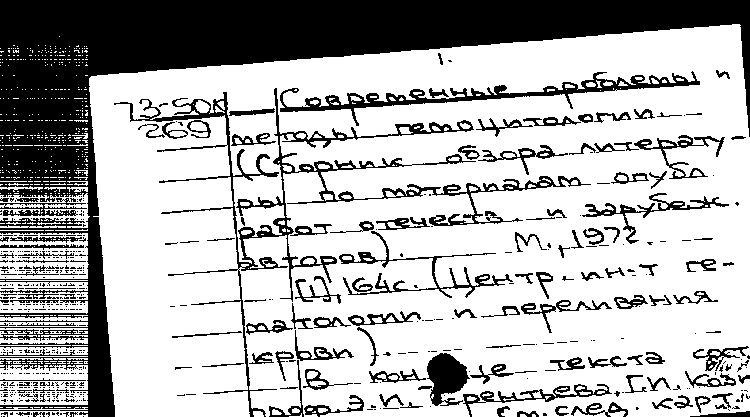 1.
73-50к Современные проблемы и
269 методы гемоцитологии.
(Сборник обзора литерату-
ры по материалам опубл
работ отечеств. и зарубеж.
авторов). М., 1972.
[1], 164с. (Центр. ин-т ге-
матологии и переливания
крови).
В конце текста сост
проф. Э.И. Терентьева, Г.И. Кози
см. след. карт.